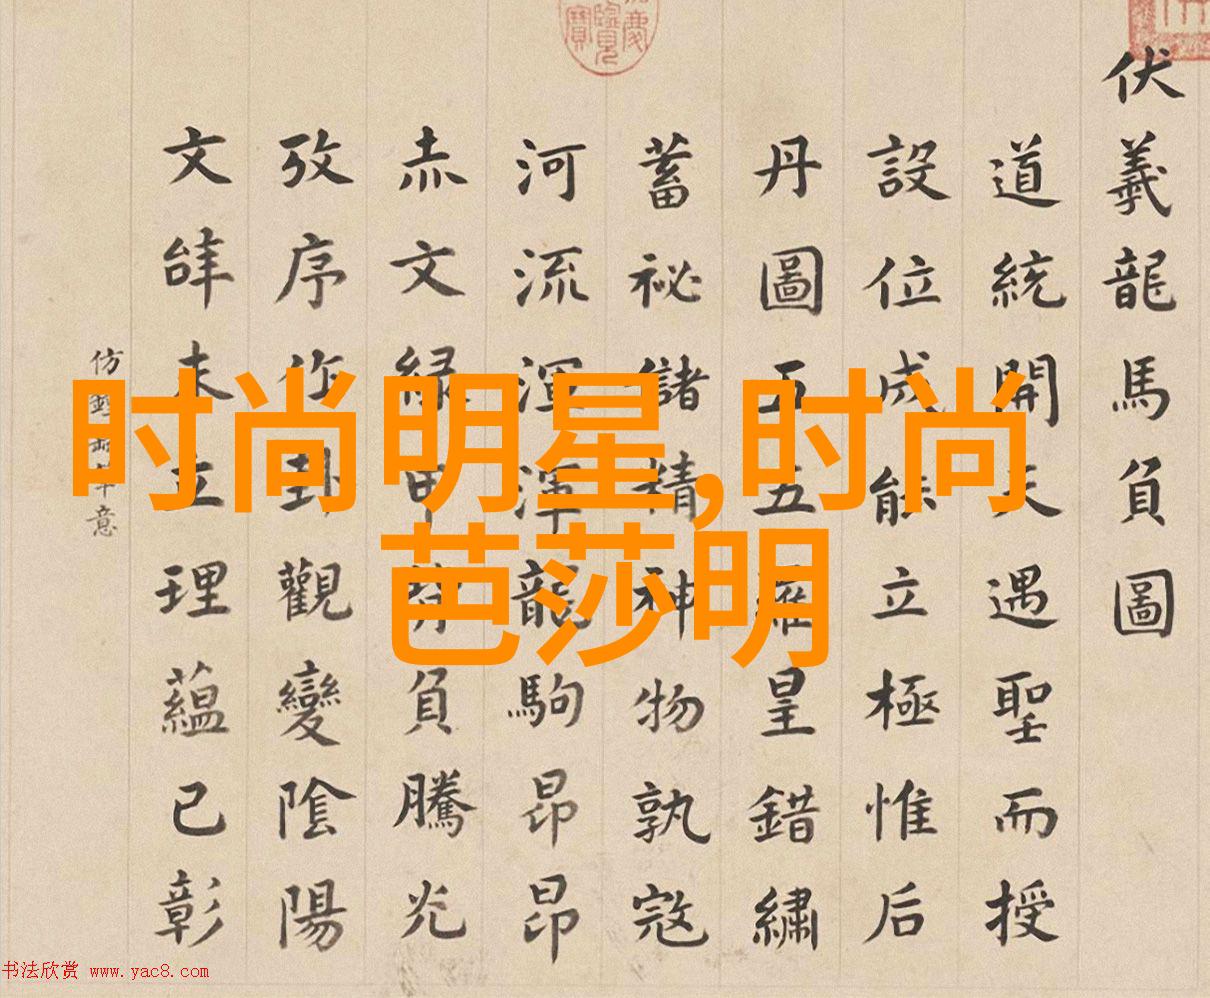 伏羲龍馬負圖
道統開天遇聖而授
設位成能立極惟后
丹圖五五羅皇錯繡
蓄祕儲精神物孰寇
河流渾渾龍駒昂昂
赤文緑甲負騰光
攷序作卦觀變陰陽
文辝未立理蘊已彰
仿意
时尚明星,时尚
芭莎明
书法欣赏 www.yac8.com